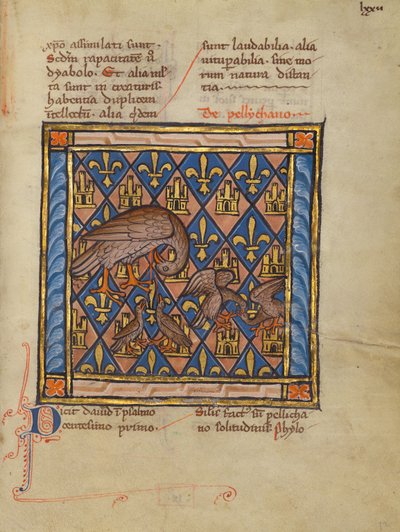 lxxii
xpō assimilati sunt.
Scdm rapacitatē ū
dyabolo. Et alia ml̄
ta sunt in creaturis
habentia duplicem
ītellectū. alia qͥdem
sunt laudabilia. alia
vituꝑabilia. sine mo
rum natura distan
tia.
De pellychano
Dicit dauid ī psalmo
centesimo primo.
Silis factꝰ suꝫ pellicha
no solitudinis. Phylo